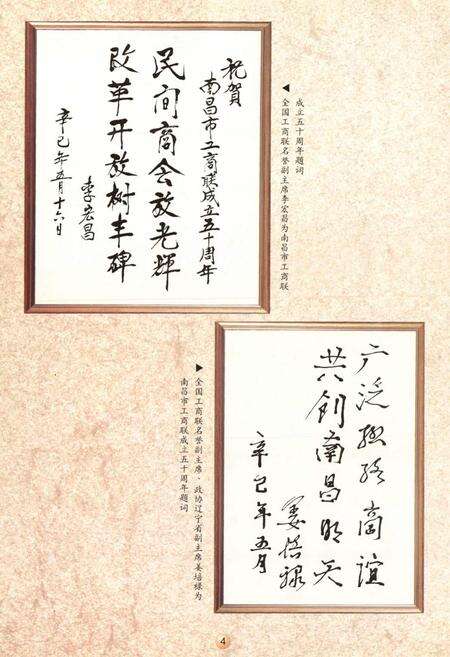 祝贺
南昌市工商联成立五十周年
民间商会放光辉
改革开放树丰碑
李宏昌
辛巳年五月十六日
全国工商联名誉副主席李宏昌为南昌市工商联
成立五十周年题词
广泛联络商谊
共创南昌明天
姜培禄
辛巳年五月
全国工商联名誉副主席、政协辽宁省副主席姜培禄为
南昌市工商联成立五十周年题词
4